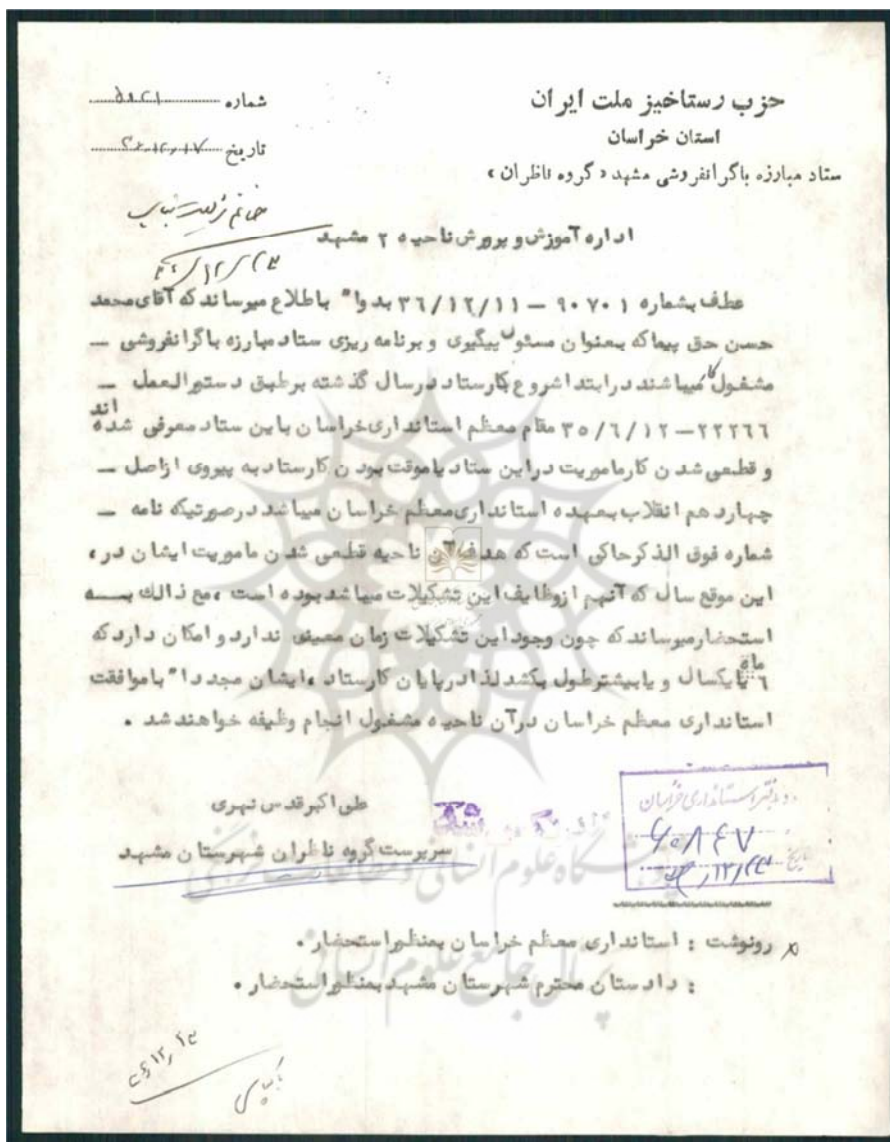 حزب رستاخیز ملت ایران
استان خراسان
ستاد مبارزه باگرانفروشی مشهد «گروه ناظران»
شماره
تاریخ ۳۶،۱۲،۱۷
خانم
۳۶/۱۲/۲۳
اداره آموزش و پرورش ناحیه ۲ مشهد
عطف بشماره ۹۰۷۰۱ – ۳۶/۱۲/۱۱ بدوا" باطلاع میرساند که آقای محمد
حسن حق پیما که بعنوان مسئول پیگیری و برنامه ریزی ستاد مبارزه باگرانفروشی –
مشغول کار میباشند درابتدا شروع بکارستاد درسال گذشته برطبق دستورالعمل –
۲۲۲۶۶–۳۵/۶/۱۲ مقام معظم استانداری خراسان باین ستاد معرفی شده اند
و قطعی شدن کارماموریت دراین ستاد یاموقت بودن کارستاد به پیروی ازاصل –
چهاردهم انقلاب بعهده استانداری معظم خراسان میباشد درصورتیکه نامه –
شماره فوق الذکرحاکی است که هدف آن ناحیه قطعی شدن ماموریت ایشان در،
این موقع سال که آنهم ازوظایف این تشکیلات میباشد بوده است ،مع ذالک بـــه
استحضارمیرساند که چون وجود این تشکیلات زمان معینی ندارد و امکان دارد که
۶ ماه یایکسال و یابیشترطول بکشد لذا درپایان کارستاد ،ایشان مجددا" باموافقت
استانداری معظم خراسان درآن ناحیه مشغول انجام وظیفه خواهند شد .
علی اکبرقدس نهری
سرپرست گروه ناظران شهرستان مشهد
دفتر استانداری خراسان
۶۰۸۴۷
تاریخ
رونوشت : استانداری معظم خراسان بمنظوراستحضار .
: دادستان محترم شهرستان مشهد بمنظوراستحضار .
پژوهشگاه علوم انسانی و مطالعات فرهنگی
پرتال جامع علوم انسانی